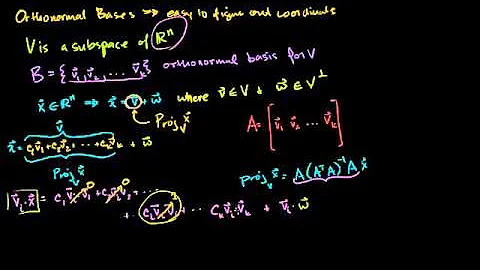 Orthonormal Bases → easy to figure out coordinates
V is a subspace of ℝⁿ
B = {v⃗₁, v⃗₂, ... v⃗ₖ} orthonormal basis for V
x⃗ ∈ ℝⁿ ⇒ x⃗ = v⃗ + w⃗ where v⃗ ∈ V + w⃗ ∈ V⊥
Proj_V x⃗
A = [v⃗₁ v⃗₂ ... v⃗ₖ]
v⃗
x⃗ = c₁v⃗₁ + c₂v⃗₂ + ... + cₖv⃗ₖ + w⃗
Proj_V x⃗
proj_V x⃗ = A(AᵀA)⁻¹A x⃗
v⃗ᵢ · x⃗ = c₁v⃗ᵢ·v⃗₁ 0 + c₂v⃗ᵢ·v⃗₂ 0 + ...
+ ... cᵢv⃗ᵢ·v⃗ᵢ + ... cₖv⃗ᵢ·v⃗ₖ + v⃗ᵢ · w⃗